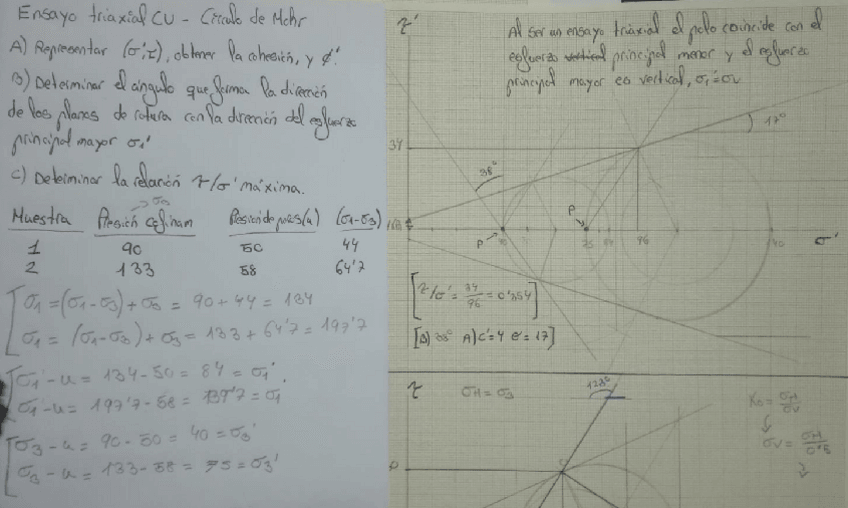 Ensayo triaxial CU - Círculo de Mohr
A) Representar (σ',τ), obtener la cohesión, y φ'.
B) Determinar el ángulo que forma la dirección
de los planos de rotura con la dirección del esfuerzo
principal mayor σ1'
C) Determinar la relación τ/σ' máxima.
→ σ3
Muestra Presión confinam Presión de poros (u) (σ1-σ3)
1 90 50 44
2 133 58 64'7
σ1 = (σ1-σ3) + σ3 = 90 + 44 = 134
σ1 = (σ1-σ3) + σ3 = 133 + 64'7 = 197'7
σ1 - u = 134 - 50 = 84 = σ1'
σ1 - u = 197'7 - 58 = 139'7 = σ1
σ3 - u = 90 - 50 = 40 = σ3'
σ3 - u = 133 - 58 = 75 = σ3'
τ'
Al ser un ensayo triaxial el polo coincide con el
esfuerzo vertical principal menor y el esfuerzo
principal mayor es vertical, σ1'=σv
17°
34
38°
P
P
75
96
140
σ'
[τ/σ' = 34/96 = 0'354]
[B) 38° A) C'=4 φ'=17]
τ
σH = σ3
128°
K0 = σH/σv
σv =